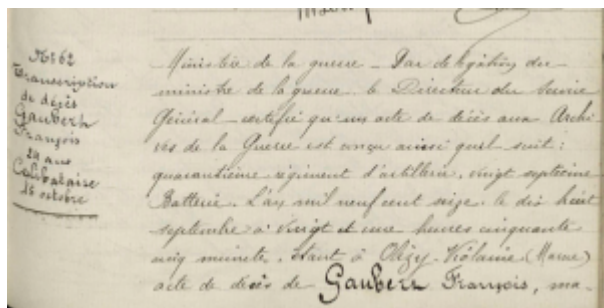 N° 62
Transcription
de décès
Gaubert
François
24 ans
Célibataire
16 octobre
Ministère de la guerre _ Par délégation du
ministre de la guerre, le Directeur du Service
Général certifie qu'un acte de décès aux Archi
ves de la Guerre est conçu ainsi qu'il suit :
quarantième régiment d'artillerie, vingt septième
Batterie. L'an mil neuf cent seize, le dix huit
septembre à vingt et une heures cinquante
cinq minutes, étant à Olizy-Violaine (Marne)
acte de décès de Gaubert François, ma-